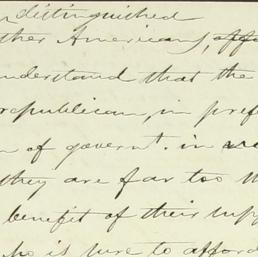 distinguished
ther Americans,
nderstand that the
republican, in pref
n of governt. in
they are far too
benefit of their supp
ho is sure to afford